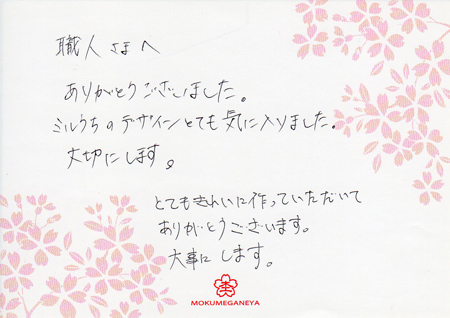 職人さまへ
ありがとうございました。
ミルクちのデザインとても気に入りました。
大切にします。
とてもきれいに作っていただいて
ありがとうございます。
大事にします。
MOKUMEGANEYA